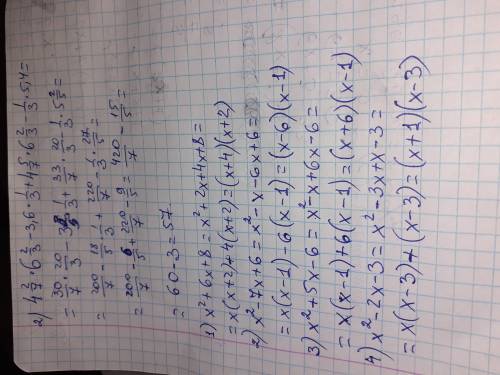 2) 4 2/7 · 6 2/3 − 3,6 · 1/3 + 4 5/7 · 6 2/3 − 1/3 · 5,4 =
= 30/7 · 20/3 − 3 · 1/3 + 33/7 · 20/3 − 1/3 · 5 2/5 =
= 200/7 − 18/5 · 1/3 + 220/7 − 1/3 · 27/5 =
= 200/7 − 6/5 + 220/7 − 9/5 = 420/7 − 15/5 =
= 60 − 3 = 57
1) x² + 6x + 8 = x² + 2x + 4x + 8 =
= x(x+2) + 4(x+2) = (x+4)(x+2)
2) x² − 7x + 6 = x² − x − 6x + 6 =
= x(x−1) − 6(x−1) = (x−6)(x−1)
3) x² + 5x − 6 = x² − x + 6x − 6 =
= x(x−1) + 6(x−1) = (x+6)(x−1)
4) x² − 2x − 3 = x² − 3x + x − 3 =
= x(x−3) + (x−3) = (x+1)(x−3)